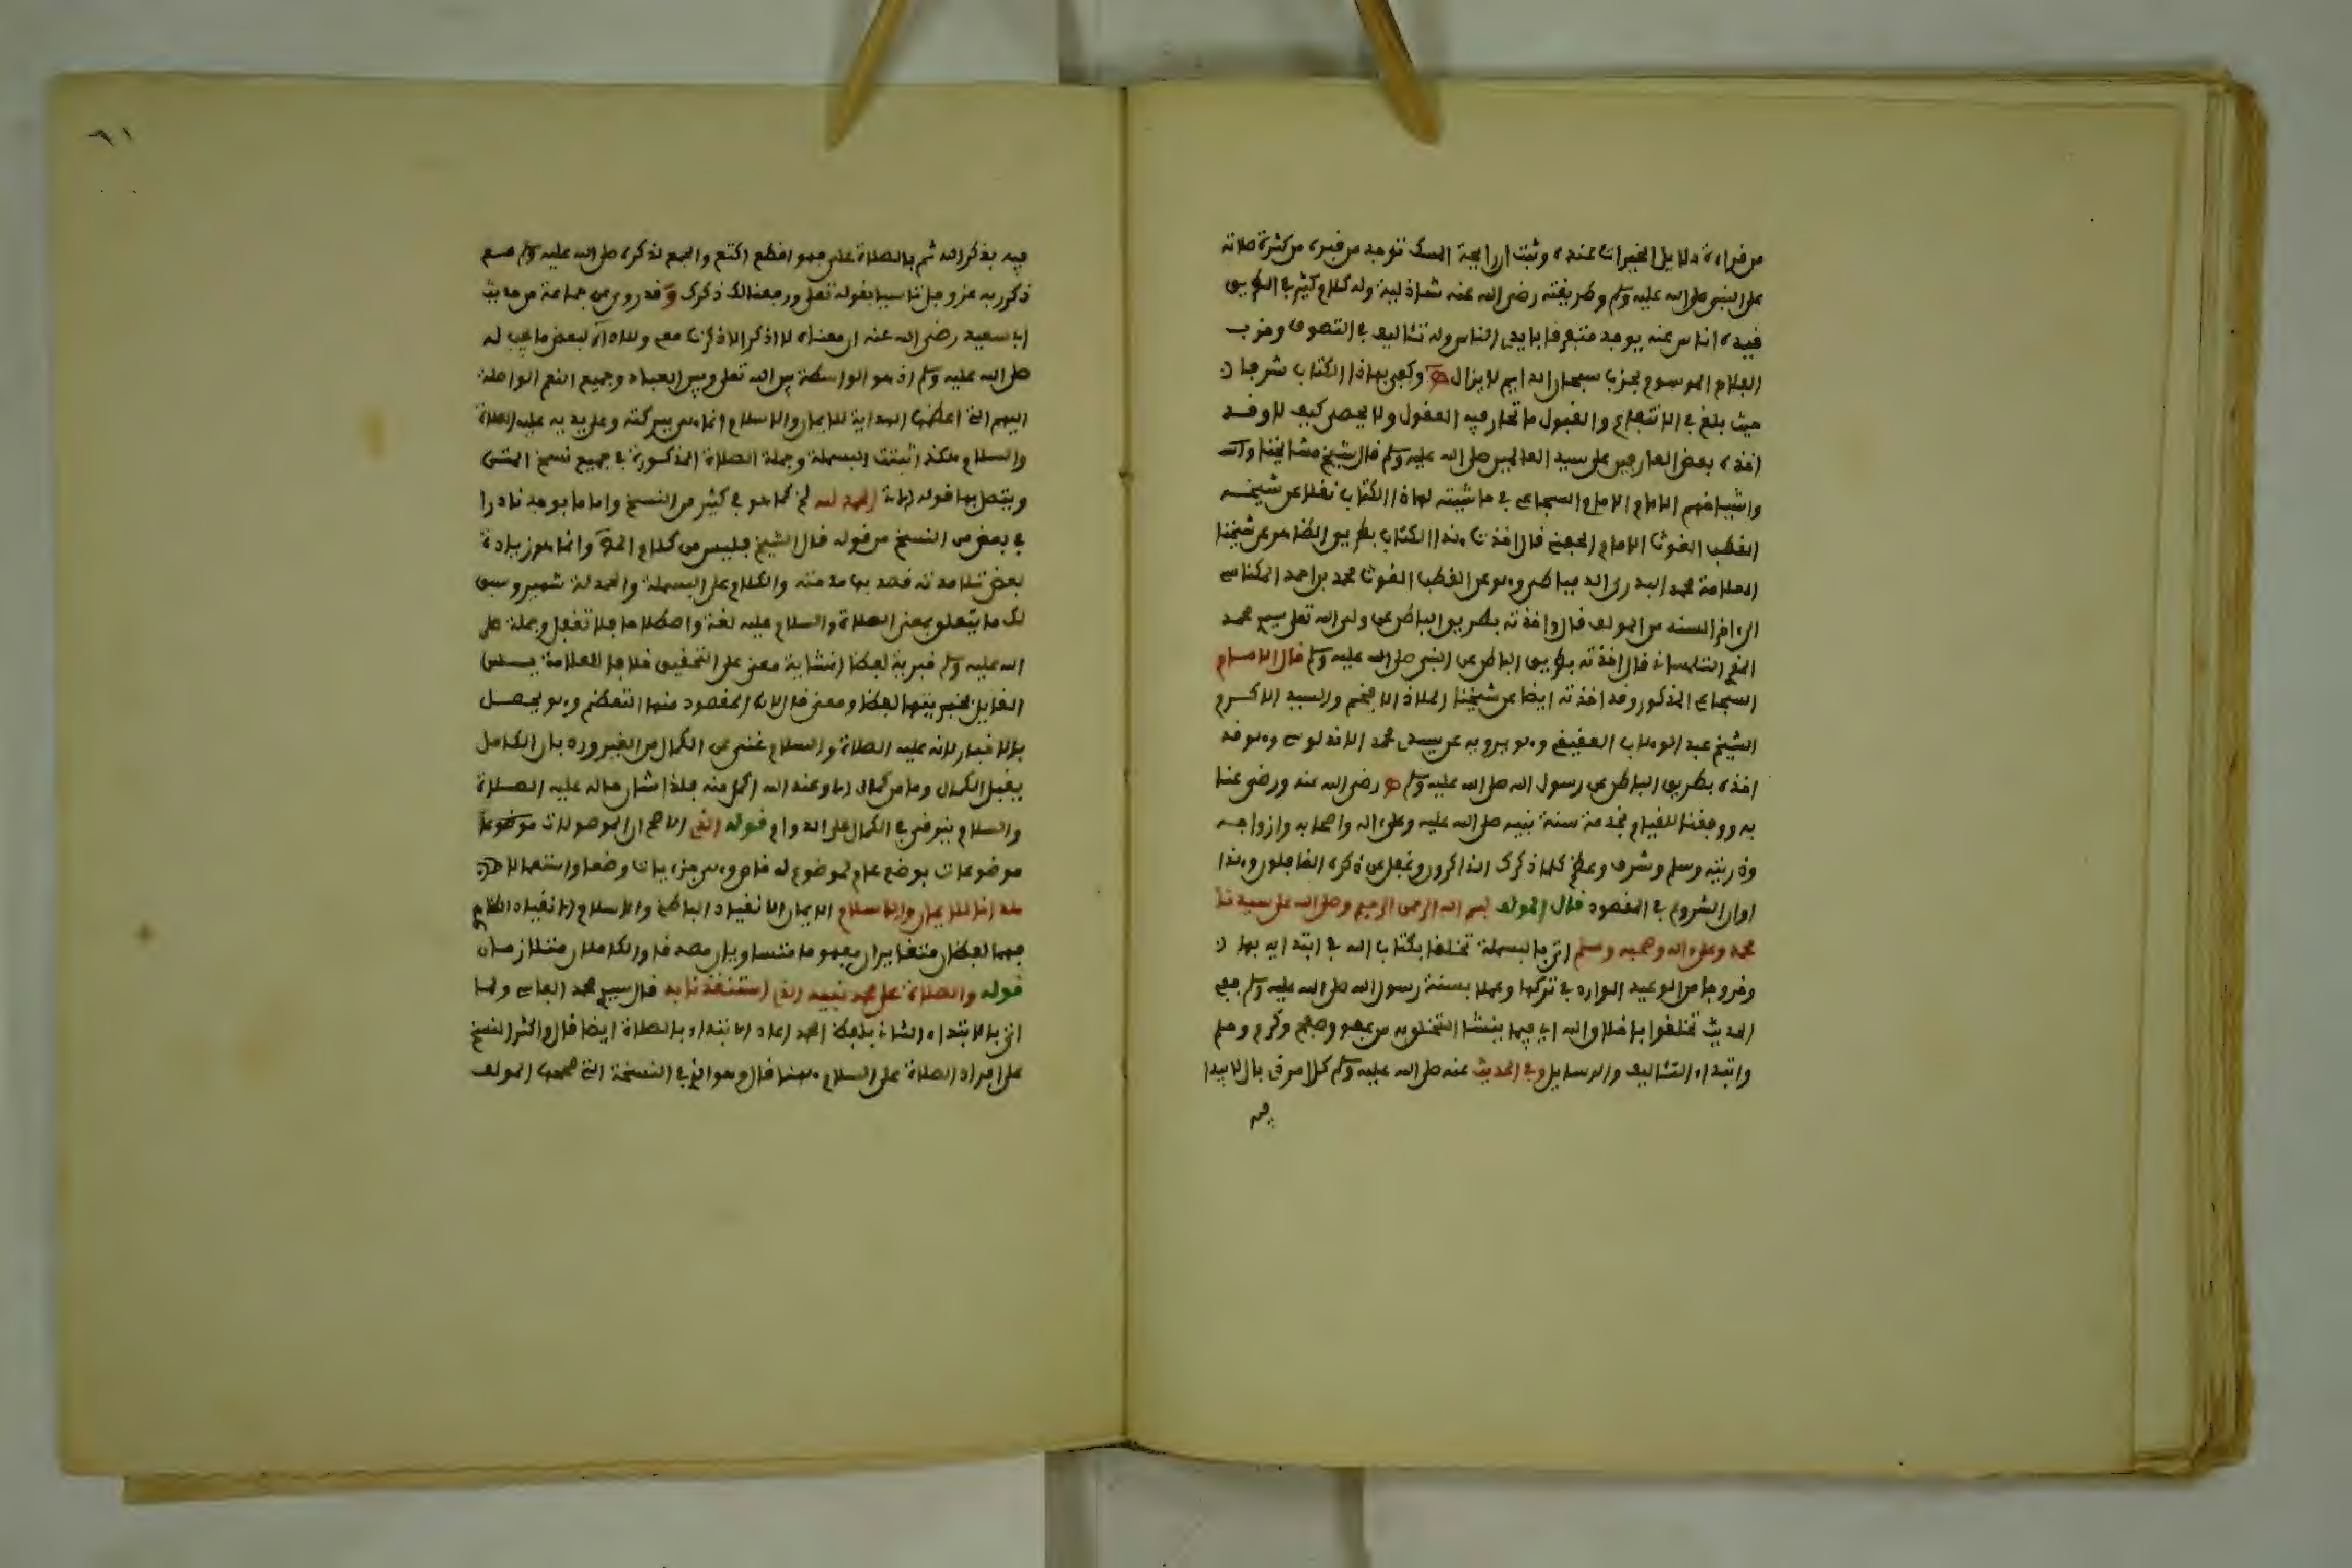 من قراءة دلايل الخيرات عنده وثبت ان رايحة المسك توجد من قبره من كثرة صلاته
على النبي صلى الله عليه وسلم وطريقته رضي الله عنه شاذلية وله كلام كثير في الطريق
قيده الناس عنه يوجد متفرقا بايدي الناس وله تئاليف في التصوف وحزب
الفلاح الموسوم بحزب سبحان الدايم لا يزال وكفى بهاذا الكتاب شرفا
حيث بلغ في الانتفاع والقبول ما تحار فيه العقول ولا يحصر كيف لا وقد
اخذه بعض العارفين على سيد العالمين صلى الله عليه وسلم قال شيخ مشايخنا
واشياخهم الامام السجاعي في حاشيته لهاذا الكتاب نقلا عن شيخه
القطب الغوث الامام الحفني قال اخذت هذا الكتاب بطريق الظاهر عن شيخنا
العلامة محمد البدري الدمياطي وهو عن القطب الغوث محمد بن احمد المكناسي
الى اخر السند من المولف قال واخذته بطريق الباطن عن ولي الله تعلى سيدي محمد
التلمساني قال اخذته بطريق الباطن عن النبي صلى الله عليه وسلم قال الامام
السجاعي المذكور وقد اخذته ايضا عن شيخنا الملاذ الافخم والسيد الاكرم
الشيخ عبد الوهاب العفيفي وهو يرويه عن سيدي محمد الاندلوسي وهو قد
اخذه بطريق الباطن عن رسول الله صلى الله عليه وسلم رضي الله عنه ورضي عنا
به ووفقنا للقيام بخدمة سنة نبيه صلى الله عليه وعلى اله واصحابه وازواجه
وذريته وسلم وشرف وعظم كلما ذكرك الذاكرون وغفل عن ذكره الغافلون وهذا
اوان الشروع في المقصود قال المولف بسم الله الرحمن الرحيم وصلى الله على سيدنا
محمد وعلى اله وصحبه وسلم اتى بالبسملة تخلقا بكتاب الله في ابتدايه بها
وخروجا من الوعيد الوارد في تركها وعملا بسنة رسول الله صلى الله عليه وسلم ففي
الحديث تخلقوا باخلاق الله اي فيما ينشا التخلق به من عفو وصفح وكرم وحلم
وابتداء التئاليف والرسايل وفي الحديث عنه صلى الله عليه وسلم كل امر ذي بال لا يبدا
فيه
٦١
فيه بذكر الله ثم بالصلاة علي فهو اقطع اكتع واتبع لذكره صلى الله عليه وسلم مع
ذكر ربه عز وجل تاسيا بقوله تعلى ورفعنا لك ذكرك وقد روي عن جماعة من حديث
ابا سعيد رضي الله عنه ان معناه لا اذكر الا ذكرت معي ولاداء لبعض ما يجب له
صلى الله عليه وسلم اذ هو الواسطة بين الله تعلى وبين العباد وجميع النعم الواصلة
اليهم التي اعظمها الهداية للايمان والاسلام انما هي ببركته وعلى يديه عليه الصلاة
والسلام هكذا اثبتت البسملة وجملة الصلاة المذكورة في جميع نسخ المتن
ويتصل بها قوله الحمد لله الخ كما هو في كثير من النسخ واما ما يوجد نادرا
في بعض من النسخ من قوله قال الشيخ فليس من كلام وانما هو زيادة
بعض تلامذته قصد بها مدحته والكلام على البسملة والحمدلة شهير وسبق
لك ما يتعلق بمعنى الصلاة والسلام عليه لغة واصطلاحا فلا تغفل وجملة صلى
الله عليه وسلم خبرية لفظا انشاية معنى على التحقيق خلافا للعلامة يس
القايل بخبريتها لفظا ومعنى قال لان المقصود منها التعظيم وهو يحصل
بالاخبار لانه عليه الصلاة والسلام غني عن الكمال من الغير ورد بان الكامل
يقبل الكمال وما من كمال الا وعند الله اكمل منه فلذا شان حاله عليه الصلاة
والسلام يترقى في الكمال على الدوام قوله الذي الاصح ان الموصولات موضوعا
موضوعات بوضع عام لموضوع له خاص وهي جزءيات وضعا واستعمالا
هدانا للايمان والاسلام الايمان الانقياد الباطني والاسلام الانقياد الظاهر
فهما لفظان متغايران مفهوما متساويان مصدقا والكاملان متلازمان
قوله والصلاة على محمد نبيه الذي استنقذنا به قال سيدي محمد الفاسي ولما
اتى بالابتداء الثاني بلفظ الحمد اعاد الابتداء بالصلاة ايضا قال واكثر النسخ
على افراد الصلاة على السلام هنا قال وهو الذي في النسخة التي صححها المولف